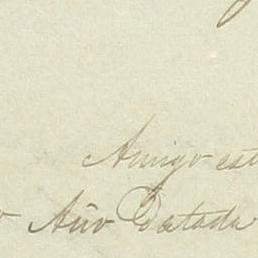 Amigo est
Aüo Datada